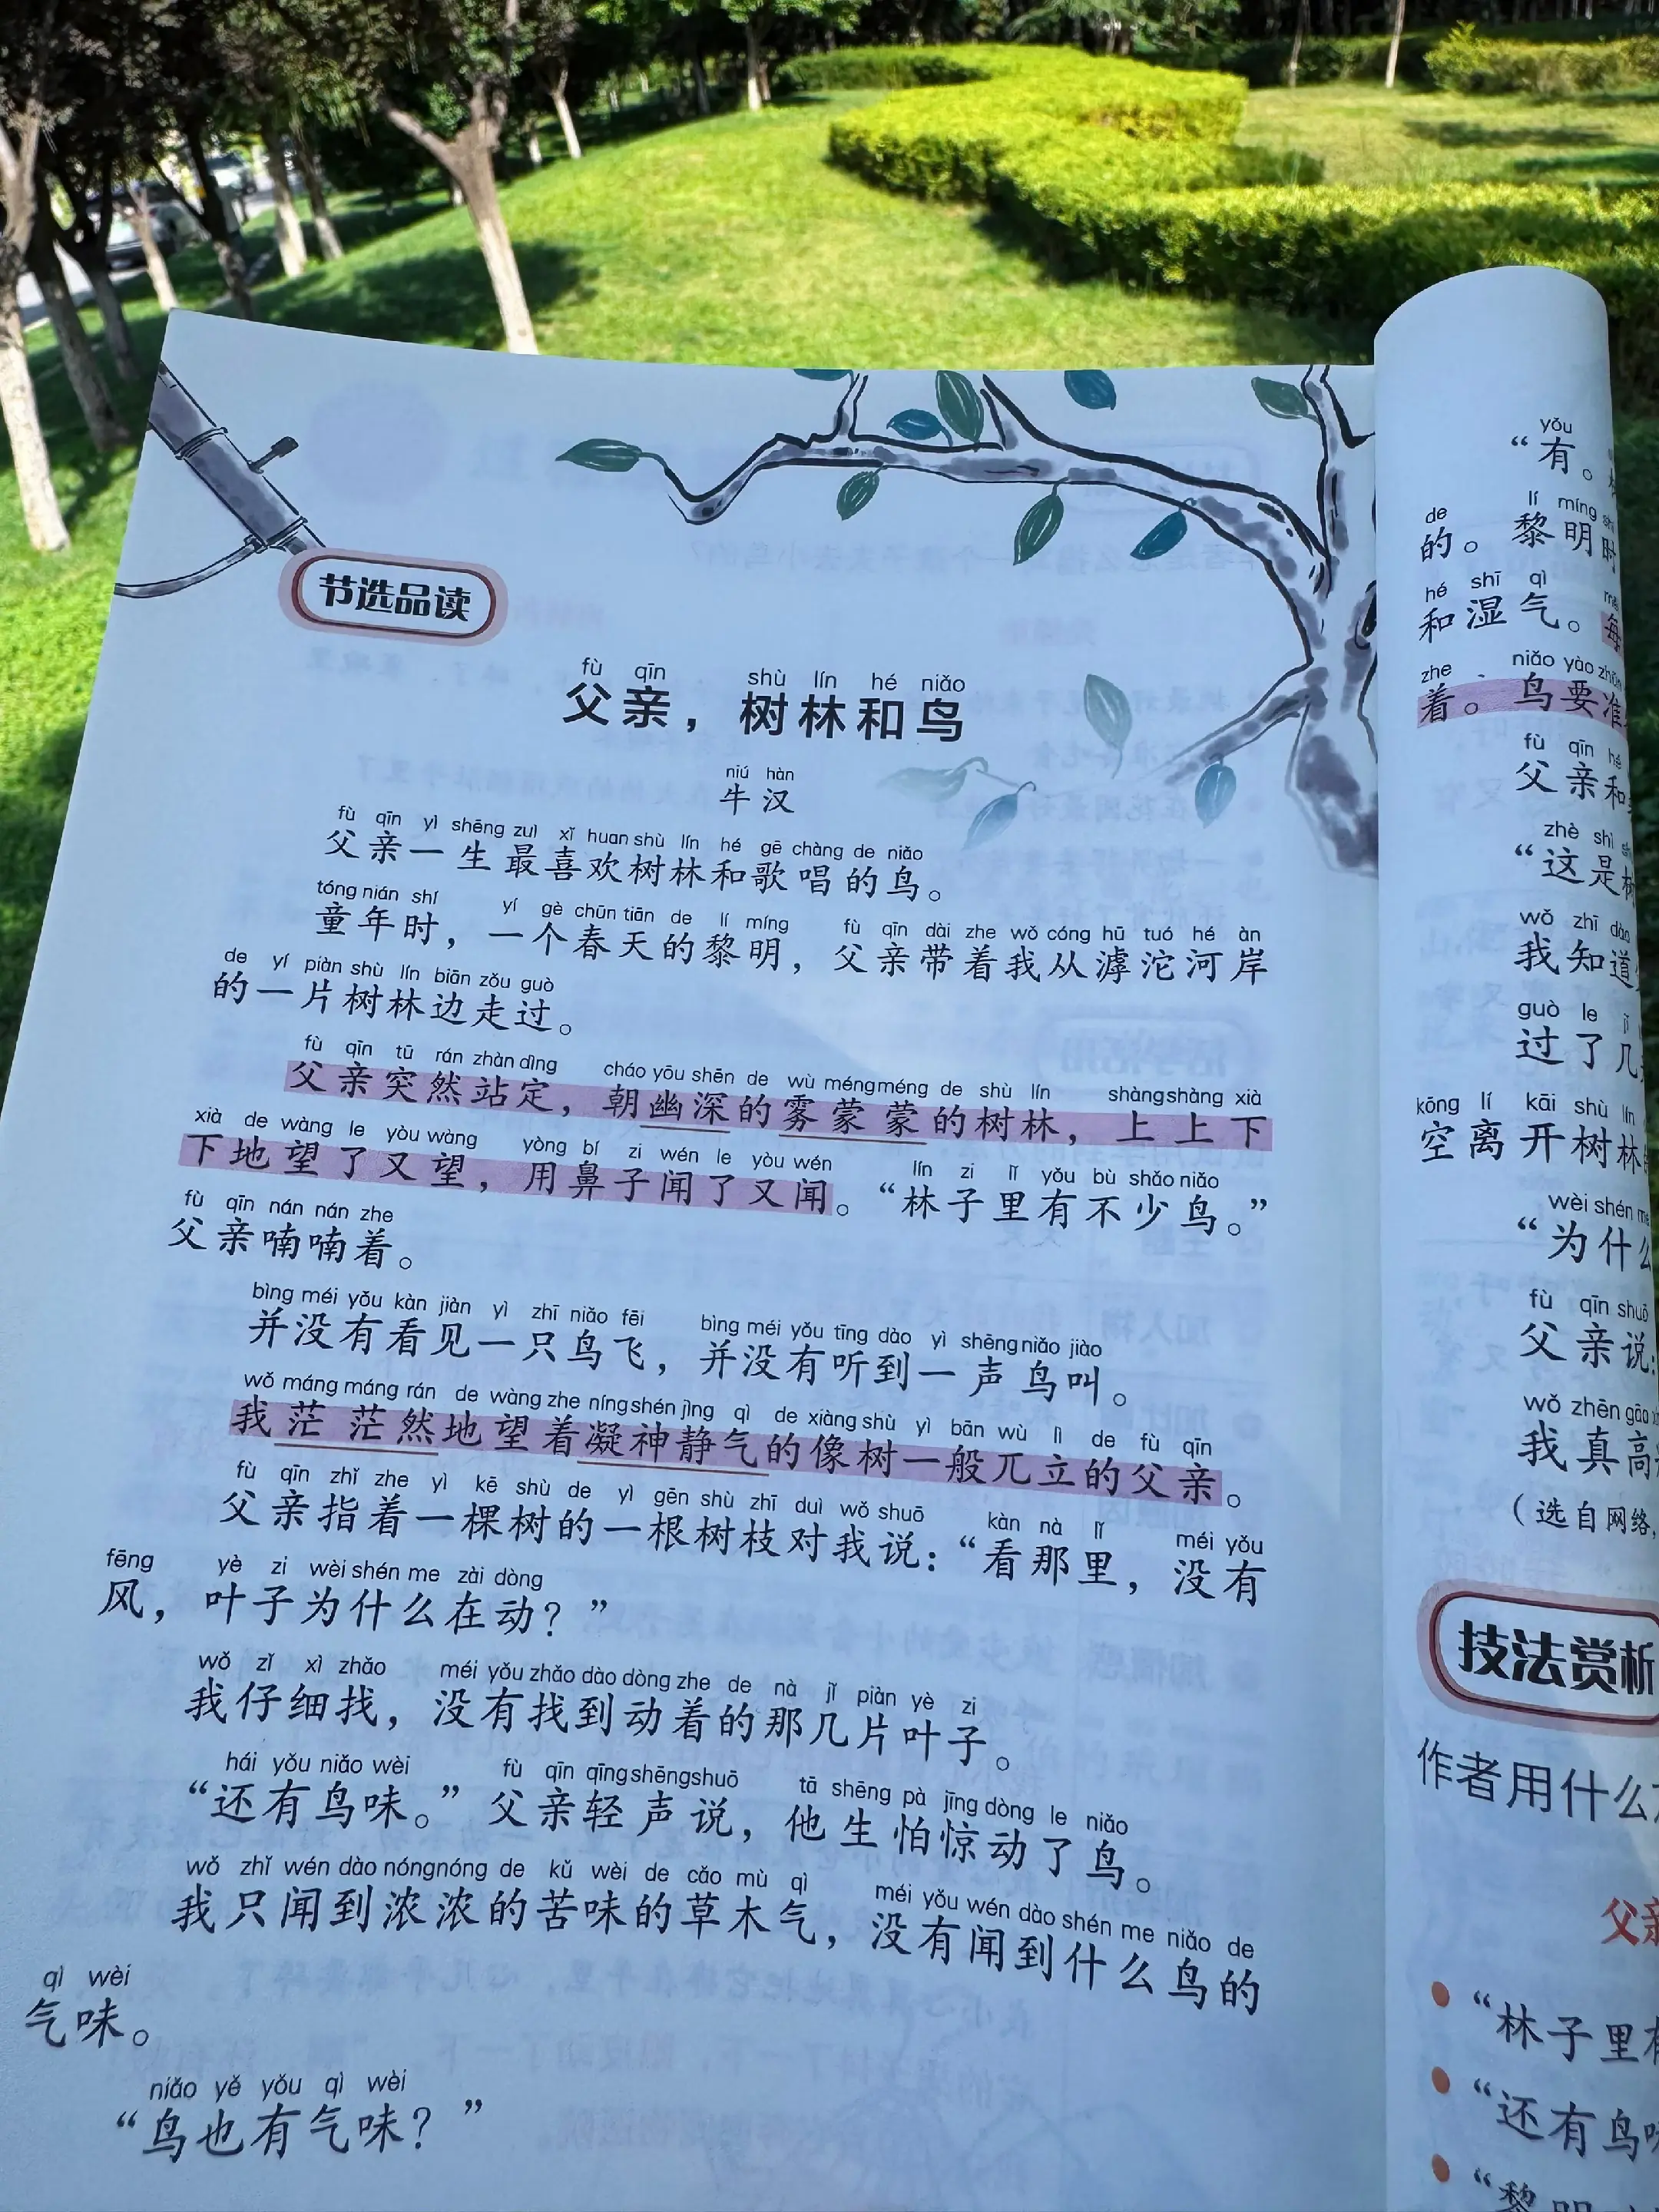 节选品读
fù qīn shù lín hé niǎo
父亲，树林和鸟
niú hàn
牛汉
fù qīn yì shēng zuì xǐ huan shù lín hé gē chàng de niǎo
父亲一生最喜欢树林和歌唱的鸟。
tóng nián shí yí gè chūn tiān de lí míng fù qīn dài zhe wǒ cóng hū tuó hé àn
童年时，一个春天的黎明，父亲带着我从滹沱河岸
de yí piàn shù lín biān zǒu guò
的一片树林边走过。
fù qīn tū rán zhàn dìng cháo yōu shēn de wù méng méng de shù lín shàng shàng xià
父亲突然站定，朝幽深的雾蒙蒙的树林，上上下
xià de wàng le yòu wàng yòng bí zi wén le yòu wén lín zi lǐ yǒu bù shǎo niǎo
下地望了又望，用鼻子闻了又闻。“林子里有不少鸟。”
fù qīn nán nán zhe
父亲喃喃着。
bìng méi yǒu kàn jiàn yì zhī niǎo fēi bìng méi yǒu tīng dào yì shēng niǎo jiào
并没有看见一只鸟飞，并没有听到一声鸟叫。
wǒ máng máng rán de wàng zhe níng shén jìng qì de xiàng shù yì bān wù lì de fù qīn
我茫茫然地望着凝神静气的像树一般兀立的父亲。
fù qīn zhǐ zhe yì kē shù de yì gēn shù zhī duì wǒ shuō kàn nà lǐ méi yǒu
父亲指着一棵树的一根树枝对我说：“看那里，没有
fēng yè zi wèi shén me zài dòng
风，叶子为什么在动？”
wǒ zǐ xì zhǎo méi yǒu zhǎo dào dòng zhe de nà jǐ piàn yè zi
我仔细找，没有找到动着的那几片叶子。
hái yǒu niǎo wèi fù qīn qīng shēng shuō tā shēng pà jīng dòng le niǎo
“还有鸟味。”父亲轻声说，他生怕惊动了鸟。
wǒ zhǐ wén dào nóng nóng de kǔ wèi de cǎo mù qì méi yǒu wén dào shén me niǎo de
我只闻到浓浓的苦味的草木气，没有闻到什么鸟的
qì wèi
气味。
niǎo yě yǒu qì wèi
“鸟也有气味？”
yǒu
“有。
de lí míng
的。黎明时
hé shī qì
和湿气。每
zhe niǎo yào
着。鸟要准
fù qīn hé
父亲和
zhè shì
“这是树
wǒ zhī dào
我知道
guò le jǐ
过了几
kōng lí kāi shù lín
空离开树林
wèi shén me
“为什么
fù qīn shuō
父亲说：
wǒ zhēn gāo
我真高
（选自网络，
技法赏析
作者用什么
父亲
“林子里有
“还有鸟味
“黎明